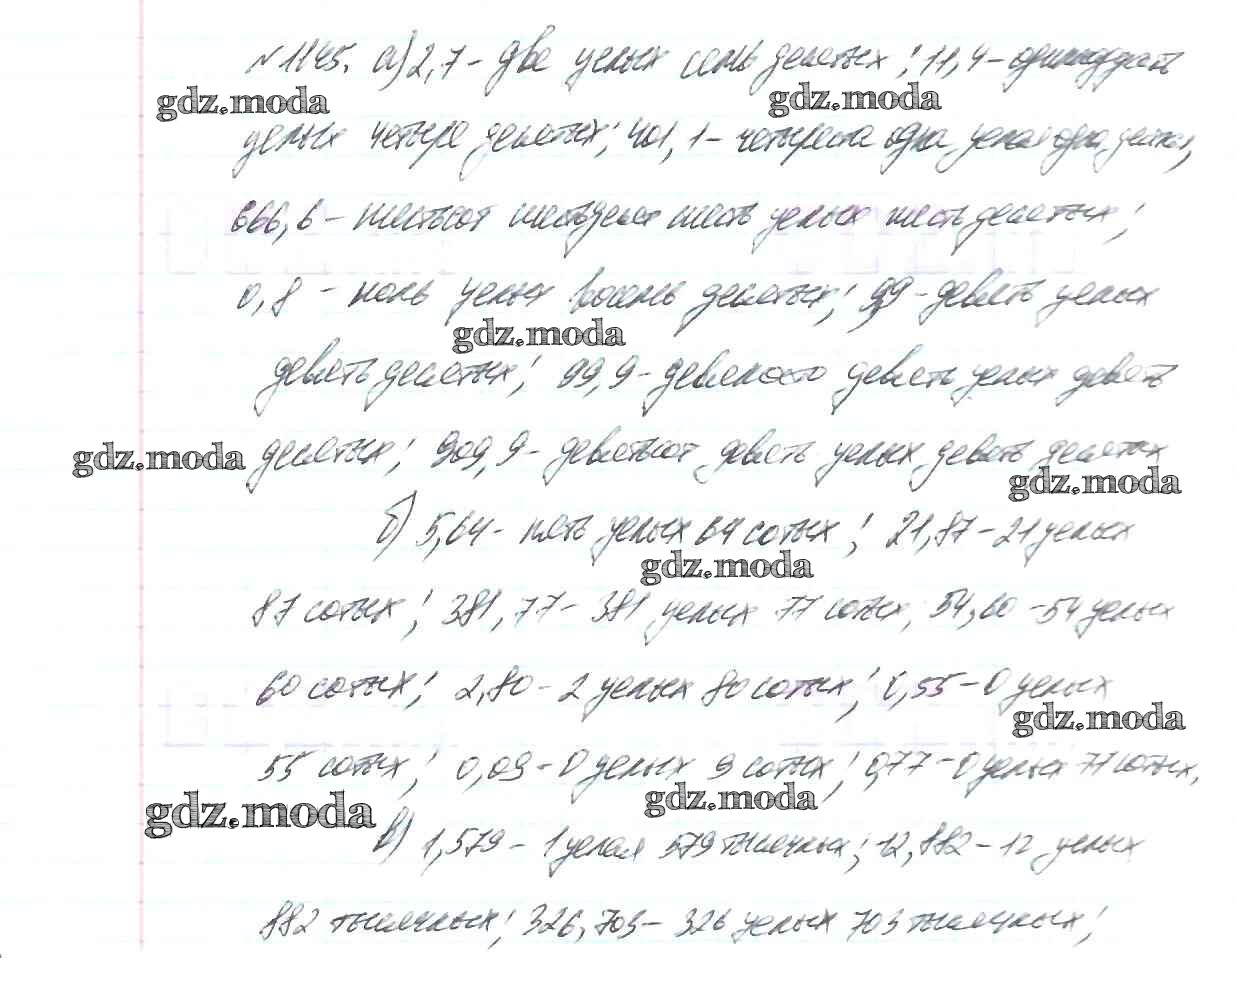 №1145. а) 2,7 - две целых семь десятых; 11,4 - одиннадцать
gdz.moda gdz.moda
целых четыре десятых; 401,1 - четыреста одна целая одна десятая,
666,6 - шестьсот шестьдесят шесть целых шесть десятых;
0,8 - ноль целых восемь десятых; 9,9 - девять целых
gdz.moda
девять десятых; 99,9 - девяносто девять целых девять
gdz.moda десятых; 909,9 - девятьсот девять целых девять десятых
gdz.moda
б) 5,64 - пять целых 64 сотых; 21,87 - 21 целых
gdz.moda
87 сотых; 381,77 - 381 целых 77 сотых, 54,60 - 54 целых
60 сотых; 2,80 - 2 целых 80 сотых; 0,55 - 0 целых
gdz.moda
55 сотых; 0,09 - 0 целых 9 сотых; 0,77 - 0 целых 77 сотых,
gdz.moda gdz.moda
в) 1,579 - 1 целая 579 тысячных; 12,882 - 12 целых
882 тысячных; 326,703 - 326 целых 703 тысячных;